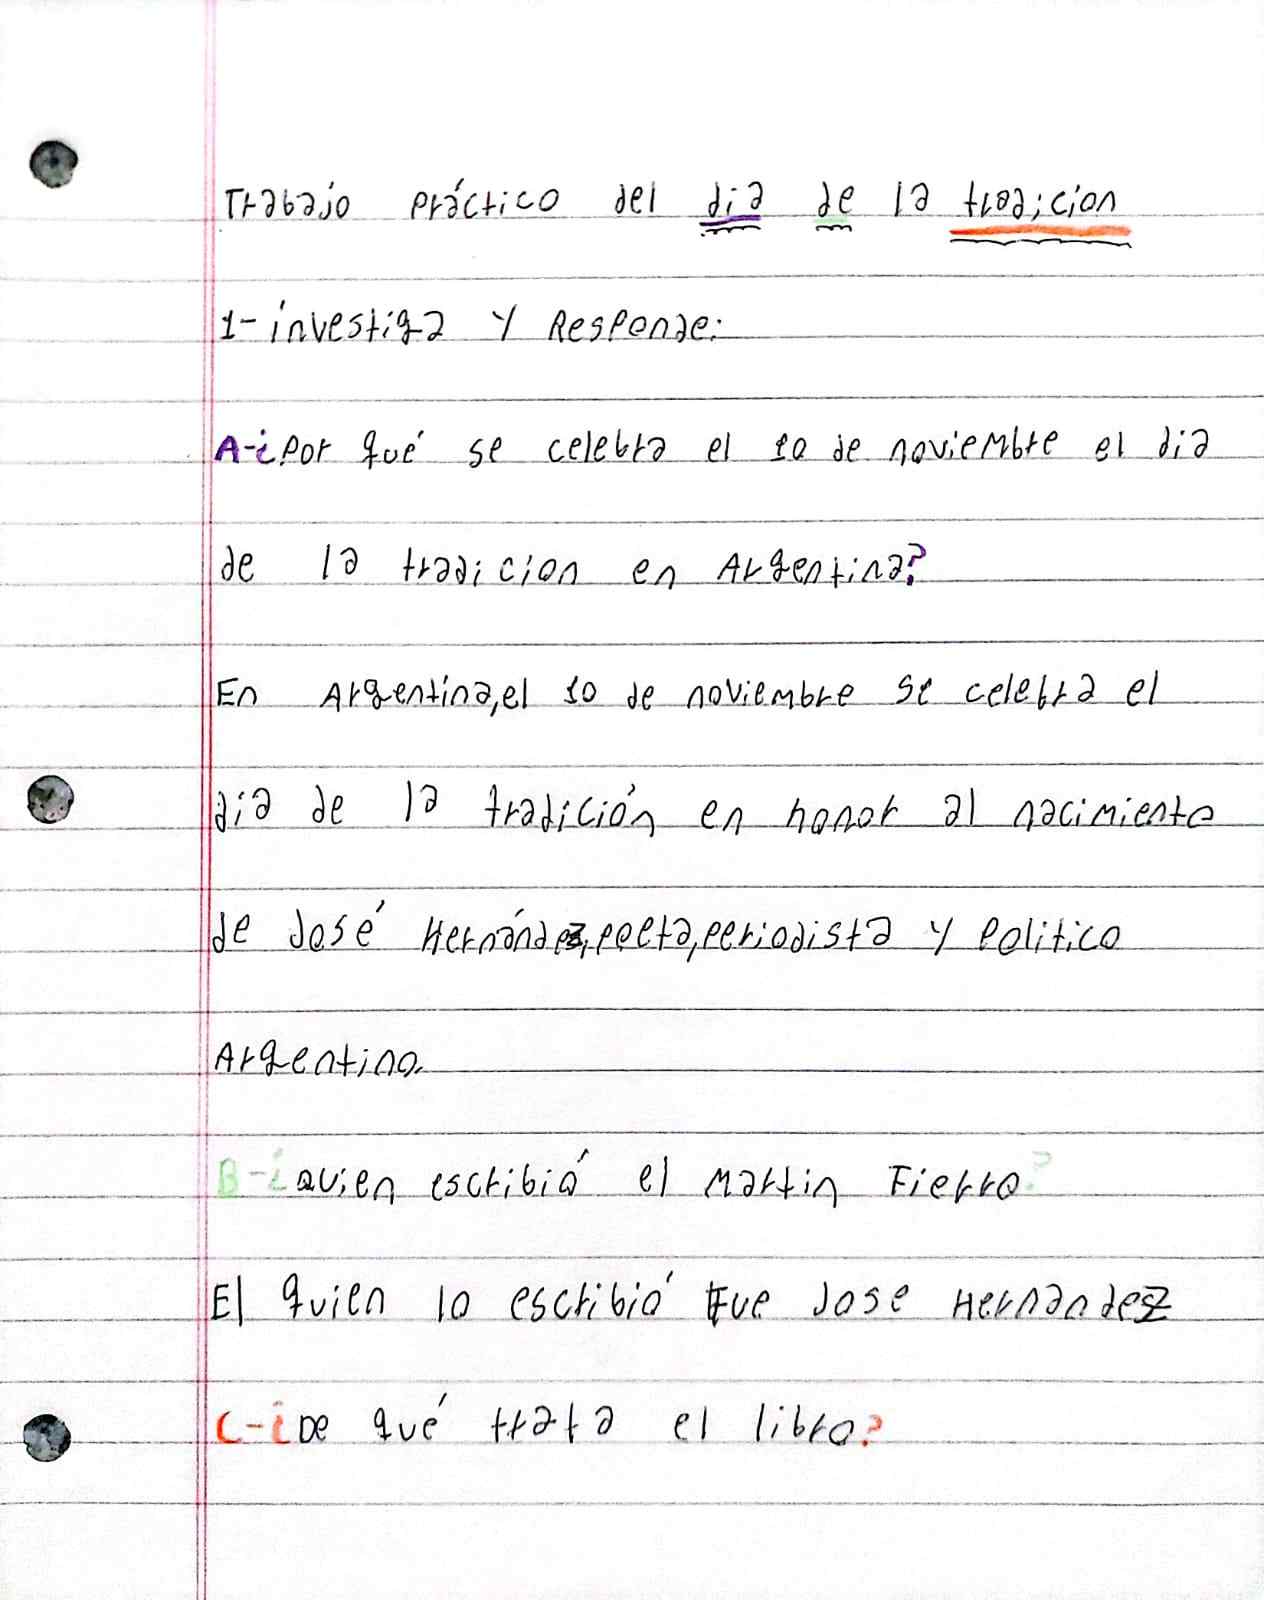 Trabajo práctico del dia de la tradicion
1- investiga y Responde:
A-¿Por qué se celebra el 10 de noviembre el dia
de la tradicion en Argentina?
En Argentina,el 10 de noviembre se celebra el
día de la tradición en honor al nacimiento
de José Hernández,poeta,periodista y politico
Argentino.
B-¿Quien escribió el Martin Fierro?
El quien lo escribió Fue Jose Hernandez
C-¿De qué trata el libro?